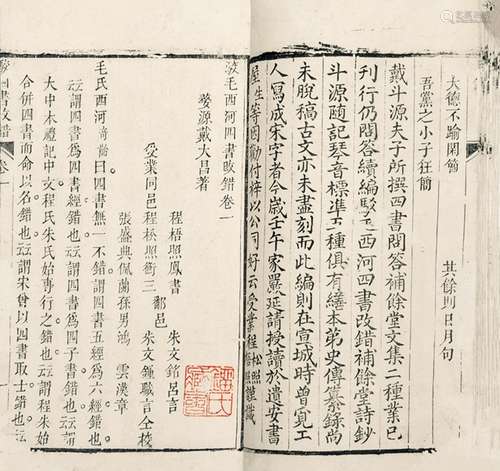 大德不踰閑節
吾黨之小子狂簡
其餘則日月句
戴斗源夫子所撰四書問答補餘堂文集二種業已
刊行仍問答續編駁毛西河四書改錯補餘堂詩鈔
斗源隨記琴音標準五種俱有繕本第史傳纂錄尚
未脫稿古文亦未盡刻而此編則在宣城時曾寬工
人寫成宋字者今歲壬午家嚴延請授讀於遺安書
屋生等因勷付梓以公同好云受業程松照
梧照謹識
駁毛西河四書改錯卷一
婺源戴大昌著
受業同邑程梧照鳳書
程松照衙三
張盛典佩蘭
鄱邑朱文銘呂言
朱文鍾職言仝校
孫男鴻雲漢章
毛氏西河曰四書無一不錯謂四書五經爲六經錯也
云云謂四書爲四書經錯也云云謂四書爲四子書錯也云云謂
大中本禮記中文程氏朱氏始專行之錯也云云謂程朱始
合併四書而命以名錯也云云謂宋曾以四書取士錯也云云
四書改錯
卷一